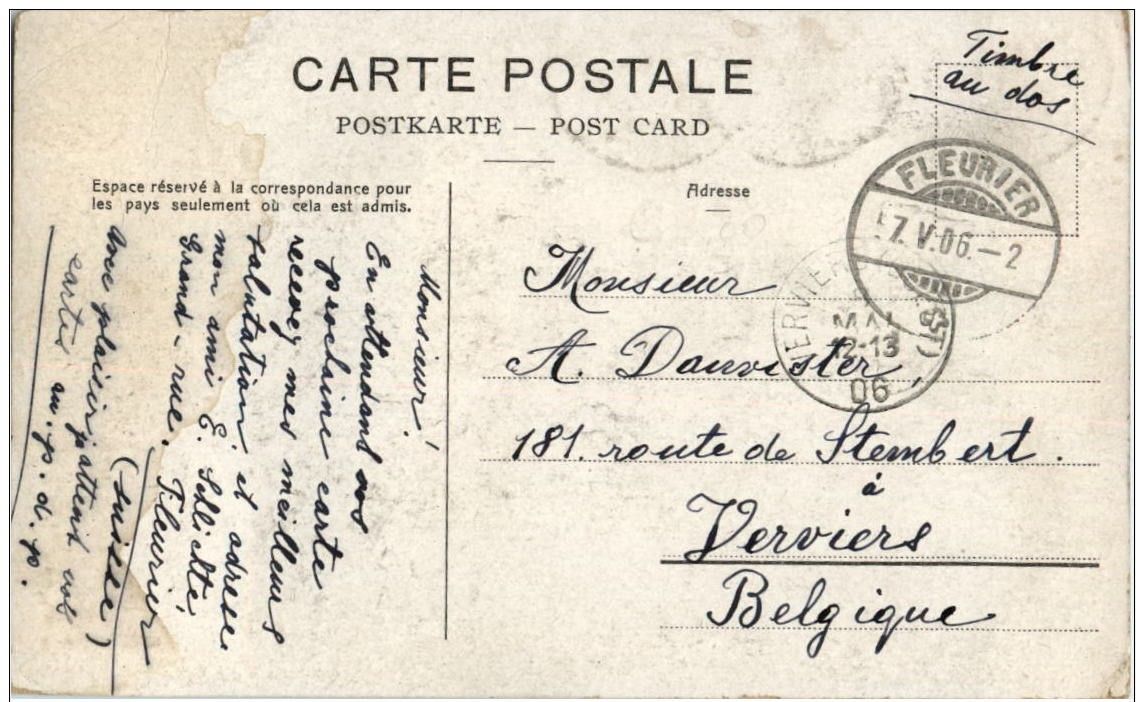 CARTE POSTALE
POSTKARTE — POST CARD
Timbre
au dos
Espace réservé à la correspondance pour
les pays seulement où cela est admis.
Adresse
FLEURIER
7.V.06.–2
VERVIER
MAI
12-13
06
Monsieur
A. Dauvister,
181. route de Stembert.
à
Verviers
Belgique
Monsieur!
En attendant vos
prochaine carte
recevez mes meilleurs
salutation et adresse
mon ami E.
Grand-rue.
Fleurier
(Suisse)
Avec plaisir j'attent vos
cartes au. p. d. p.